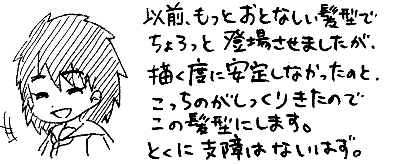 以前、もっとおとなしい髪型で
ちょろっと登場させましたが、
描く度に安定しなかったのと、
こっちのがしっくりきたので
この髪型にします。
とくに支障はないはず。